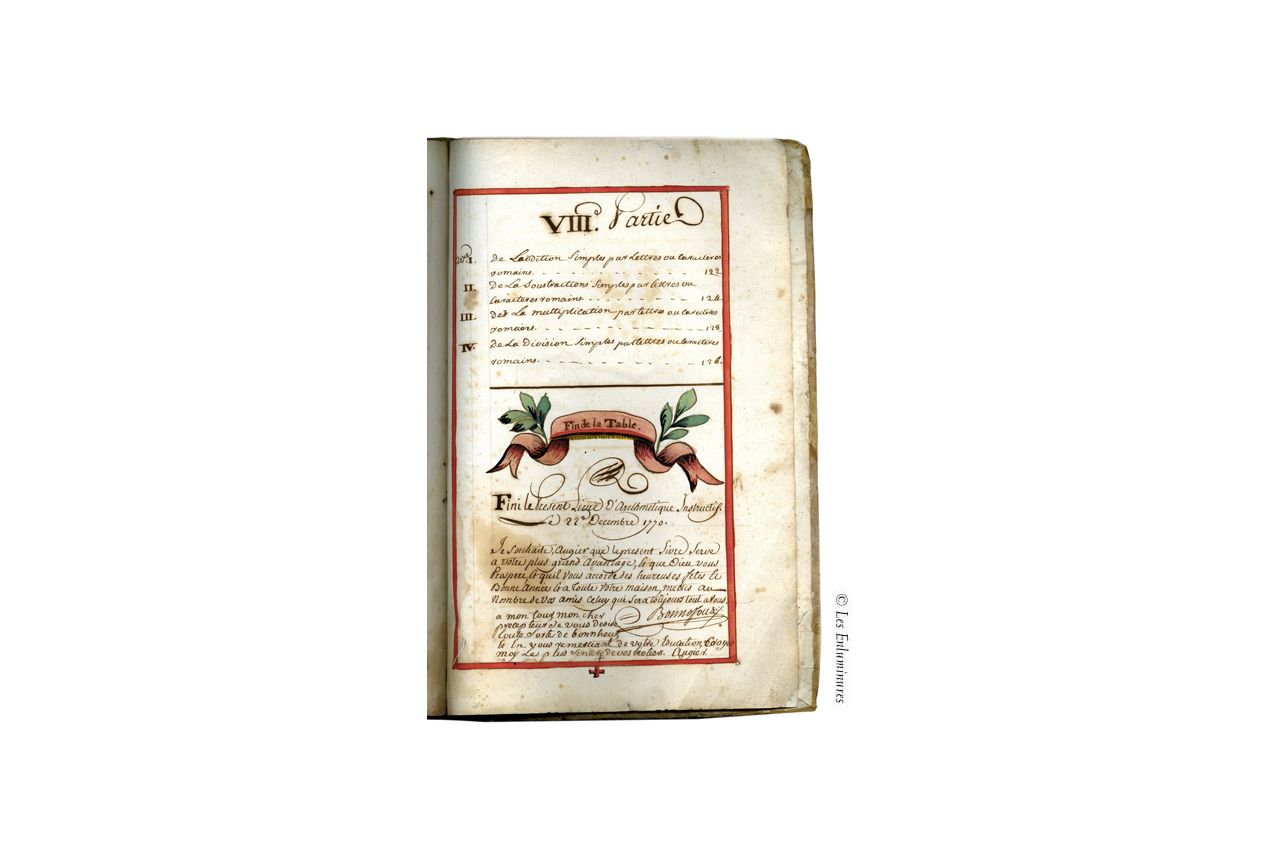 VIII.e Partie
Art.e I. De Laddition Simples par Lettres ou Caracteres
romains. 122
II. De La Soustractions Simples par lettres ou
Caracteres romains. 124
III. La multiplication par lettres ou Caracteres
romains. 126
IV. De La Division Simples par lettres ou Caracteres
romains. 128.
Fin de la Table.
Fini le Present Livre D'Arithmetique Instructif.
Le 22e Decembre 1770.
Je Souhaite, Augier que le present Livre Serve
a votre plus grand Avantage, et que Dieu vous
Prospere, et qu'il vous accorde des heureuses fetes et
Bonne Année et a toute votre maison, mettés au
Nombre de vos amis Celuy qui sera toujours tout a vous.
Bonnefoux
a mon tour mon cher
precepteur Je vous desire
toute Sorte de bonnheur
et En vous remerciant de votre Education Croyés
moy Le plus Sincere de vos Ecoliers. Augier.
© Les Enluminures